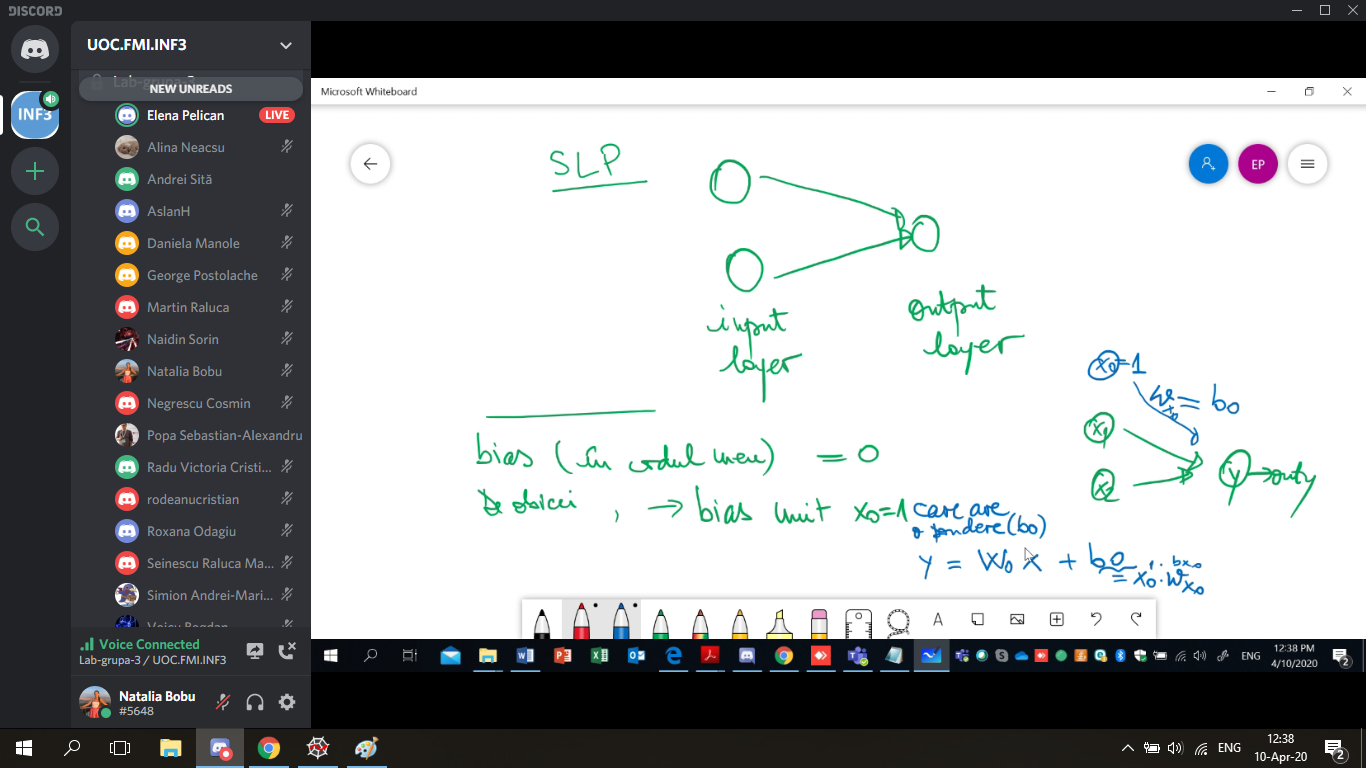 DISCORD
UOC.FMI.INF3
Lab-grupa-3
NEW UNREADS
INF3
Elena Pelican LIVE
Alina Neacsu
Andrei Sită
AslanH
Daniela Manole
George Postolache
Martin Raluca
Naidin Sorin
Natalia Bobu
Negrescu Cosmin
Popa Sebastian-Alexandru
Radu Victoria Cristi...
rodeanucristian
Roxana Odagiu
Seinescu Raluca Ma...
Simion Andrei-Mari...
Voicu Bogdan
Voice Connected
Lab-grupa-3 / UOC.FMI.INF3
Natalia Bobu
#5648
Microsoft Whiteboard
EP
SLP
input
layer
output
layer
x0=1
w x0 = b0
x1
x2
y
bias (în codul meu) = 0
De obicei , → bias unit x0=1 care are
o pondere (b0)
y = W0 X + b0
1 · bx0
= x0 · Wx0
A
ENG
12:38 PM
4/10/2020
2
ENG
12:38
10-Apr-20
2